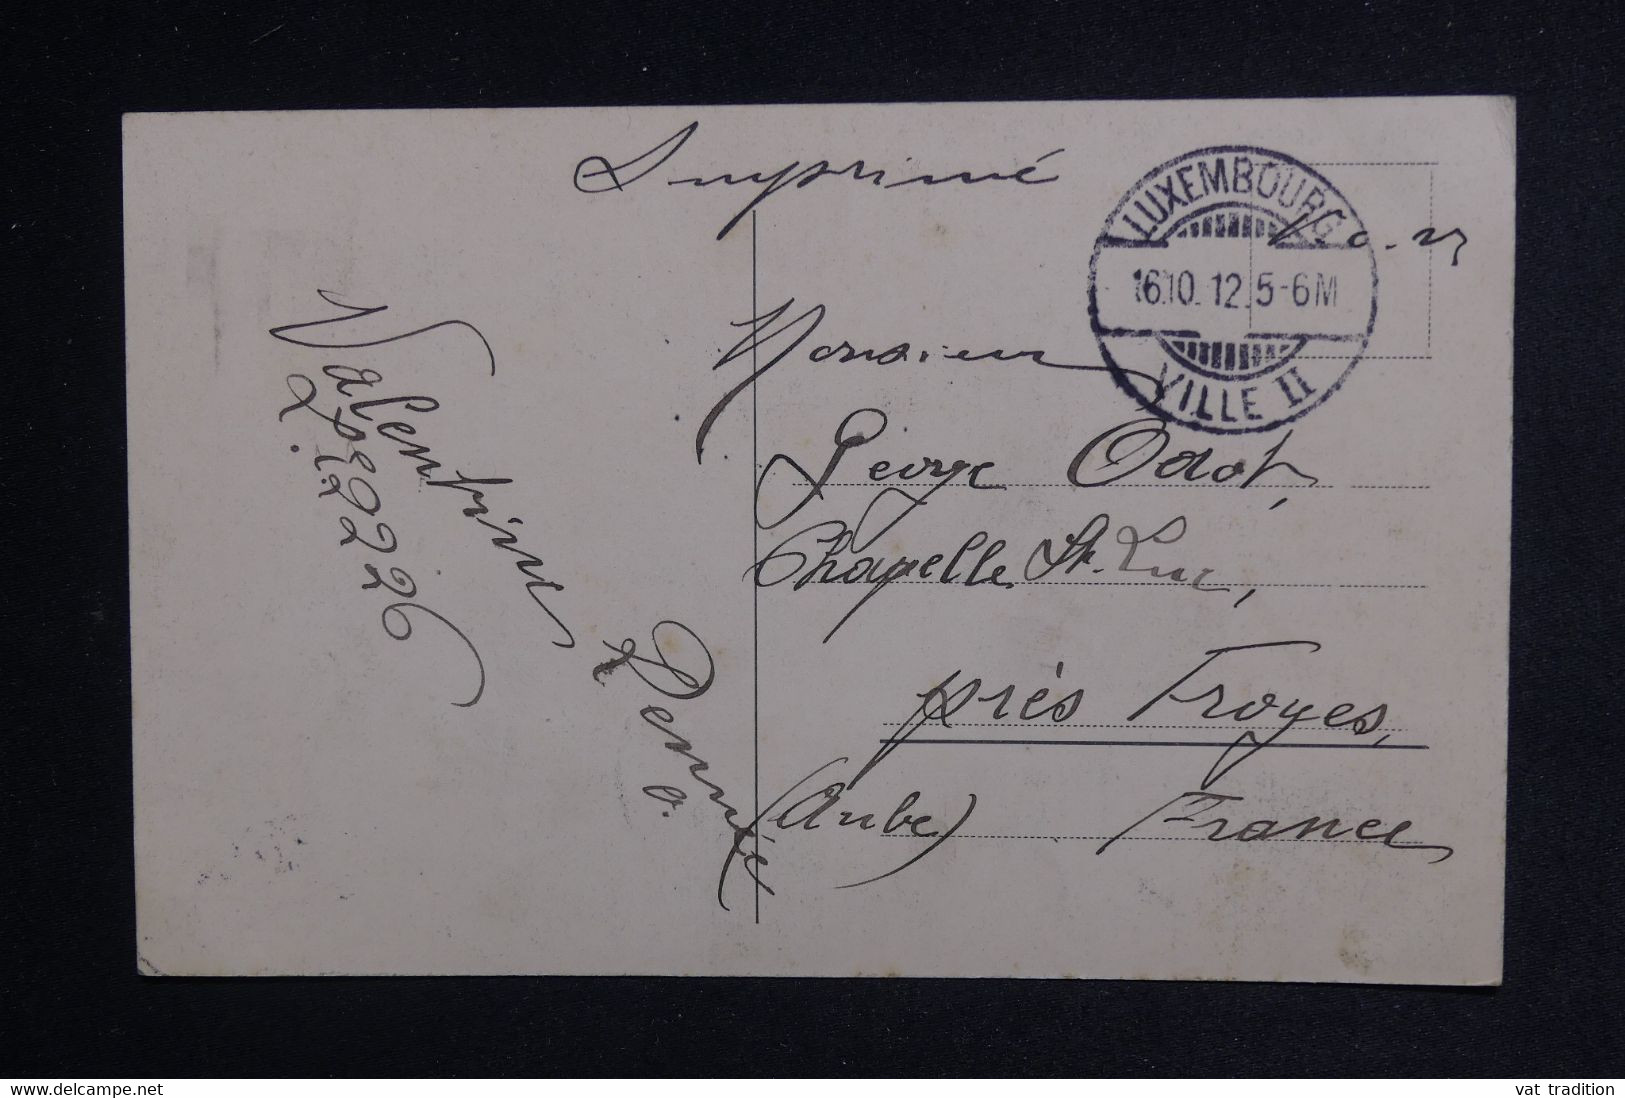 Imprimé
LUXEMBOURG
16.10.12.5-6M
VILLE II
Monsieur
George Odot,
Chapelle St. Luc,
près Troyes,
(Aube) France
Valentine
22226
www.delcampe.net
vat tradition